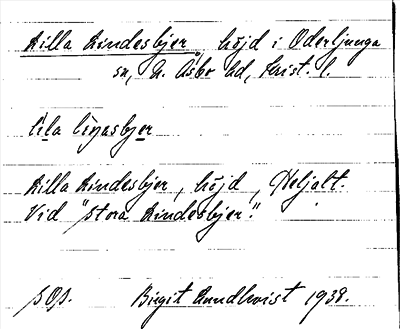 Lilla Lindesbjer, höjd i Oderljunga
sn, N. Åsbo hd, Krist. l.
lila linasbjer
Lilla Lindesbjer, höjd, Heljalt.
Vid "Stora Lindesbjer".
SOS. Birgit Lundkvist 1938.